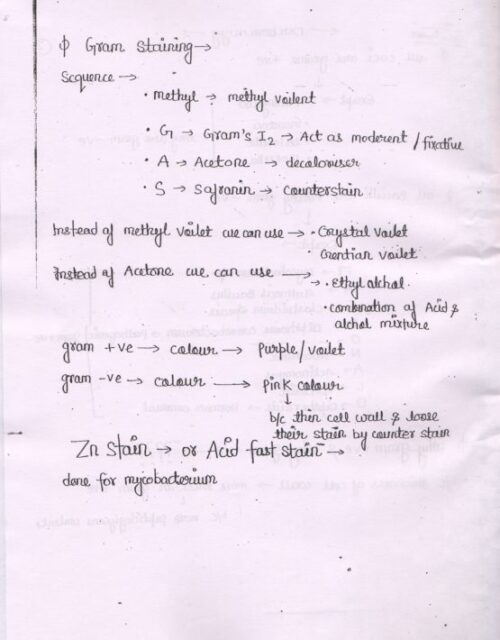 ϕ Gram Staining →
Sequence →
· methyl → methyl voilent
· G → Gram's I2 → Act as moderent / fixative
· A → Acetone → decaloriser
· S → Safranin → counterstain
Instead of methyl voilet we can use → · Crystal voilet
Gentian voilet
Instead of Acetone we can use → · Ethyl alchol.
· combination of Acid &
alchol mixture
gram +ve → colour → Purple / voilet
gram -ve → colour → Pink colour
↓
b/c thin cell wall & loose
their stain by counter stain
Zn Stain → or Acid fast stain →
done for mycobacterium